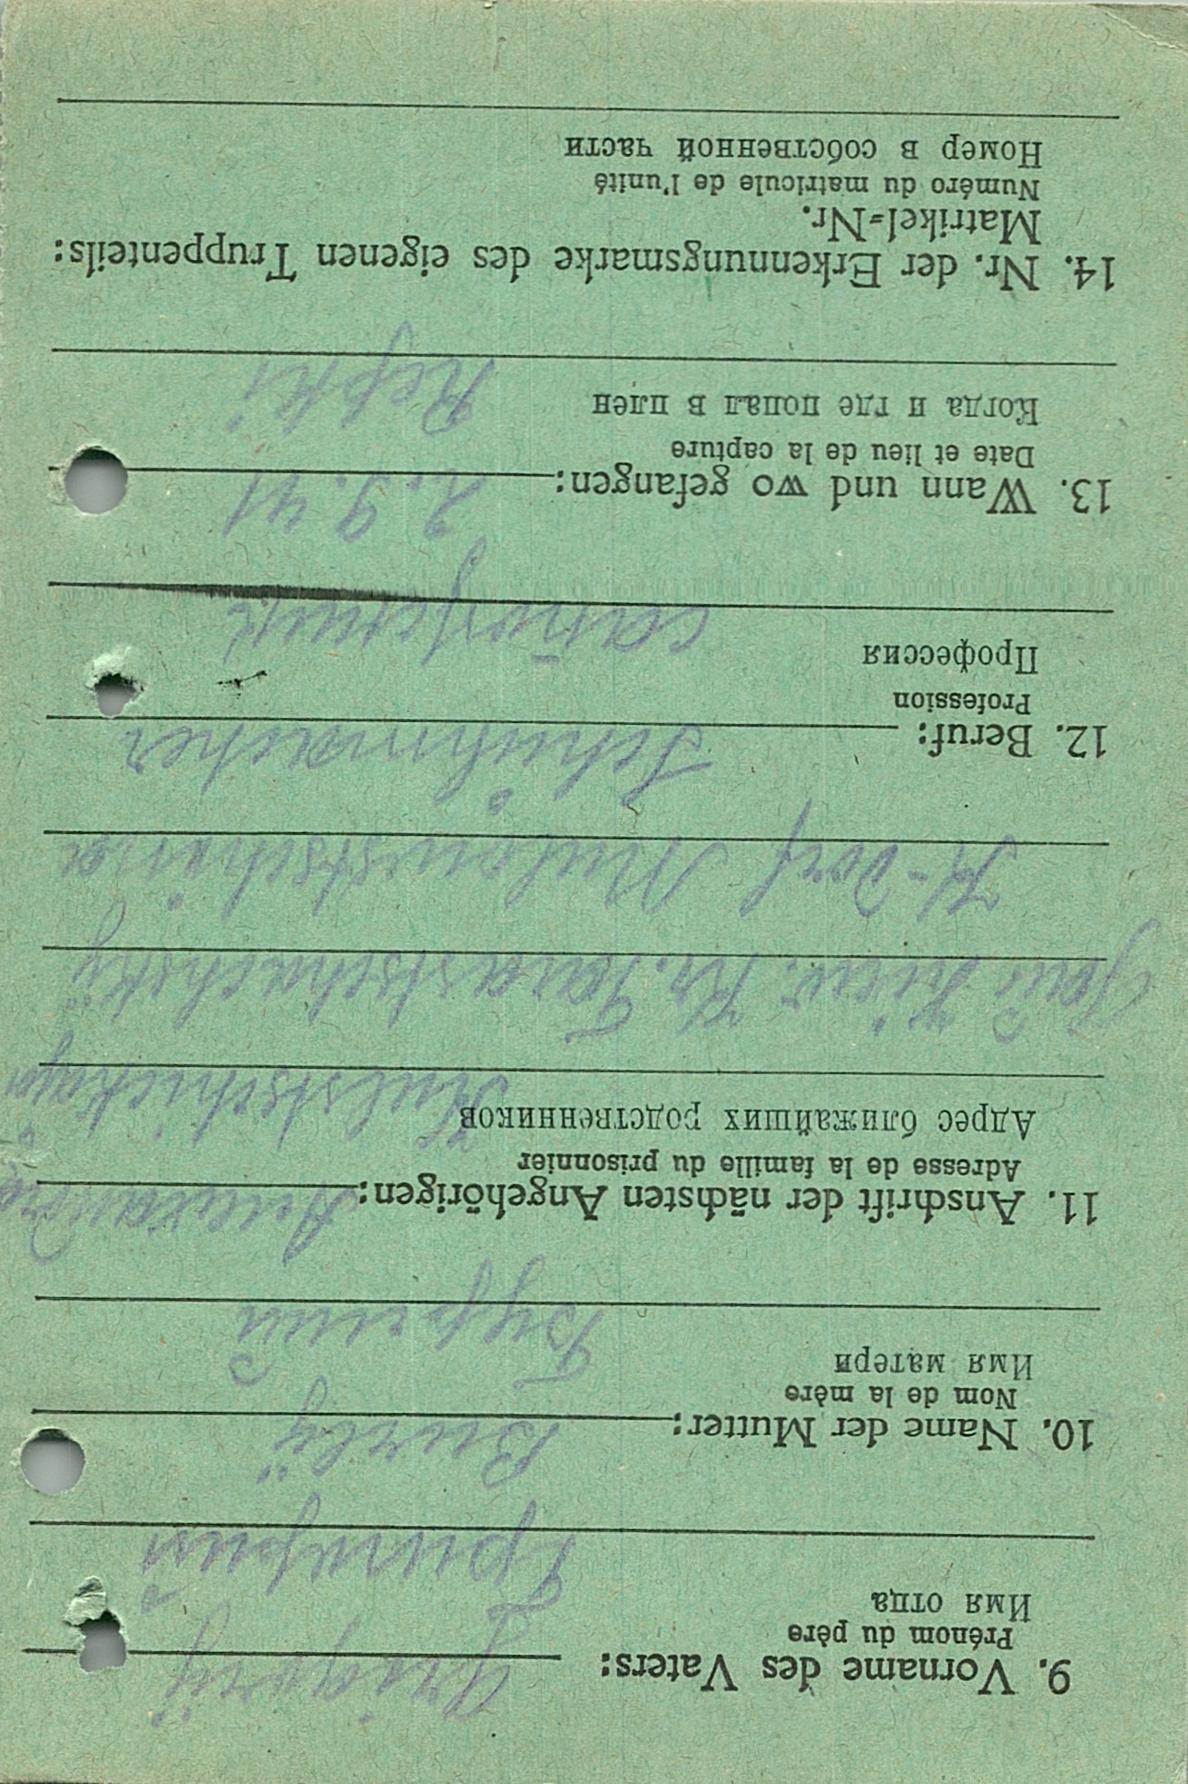 9. Vorname des Vaters: Grigorij
Prénom du père
Имя отца
Григорий
10. Name der Mutter: Burlÿ
Nom de la mère
Имя матери
11. Anschrift der nächsten Angehörigen:
Adresse de la famille du prisonnier
Адрес ближайших родственников
Gau Kiew. Kr. Taraschtschansky
K-Dorf
12. Beruf: Schuhmacher
Profession
Профессия
сапожник
13. Wann und wo gefangen: 2.9.41
Date et lieu de la capture
Когда и где попал в плен Repki
14. Nr. der Erkennungsmarke des eigenen Truppenteils:
Matrikel=Nr.
Numéro du matricule de l'unité
Номер в собственной части